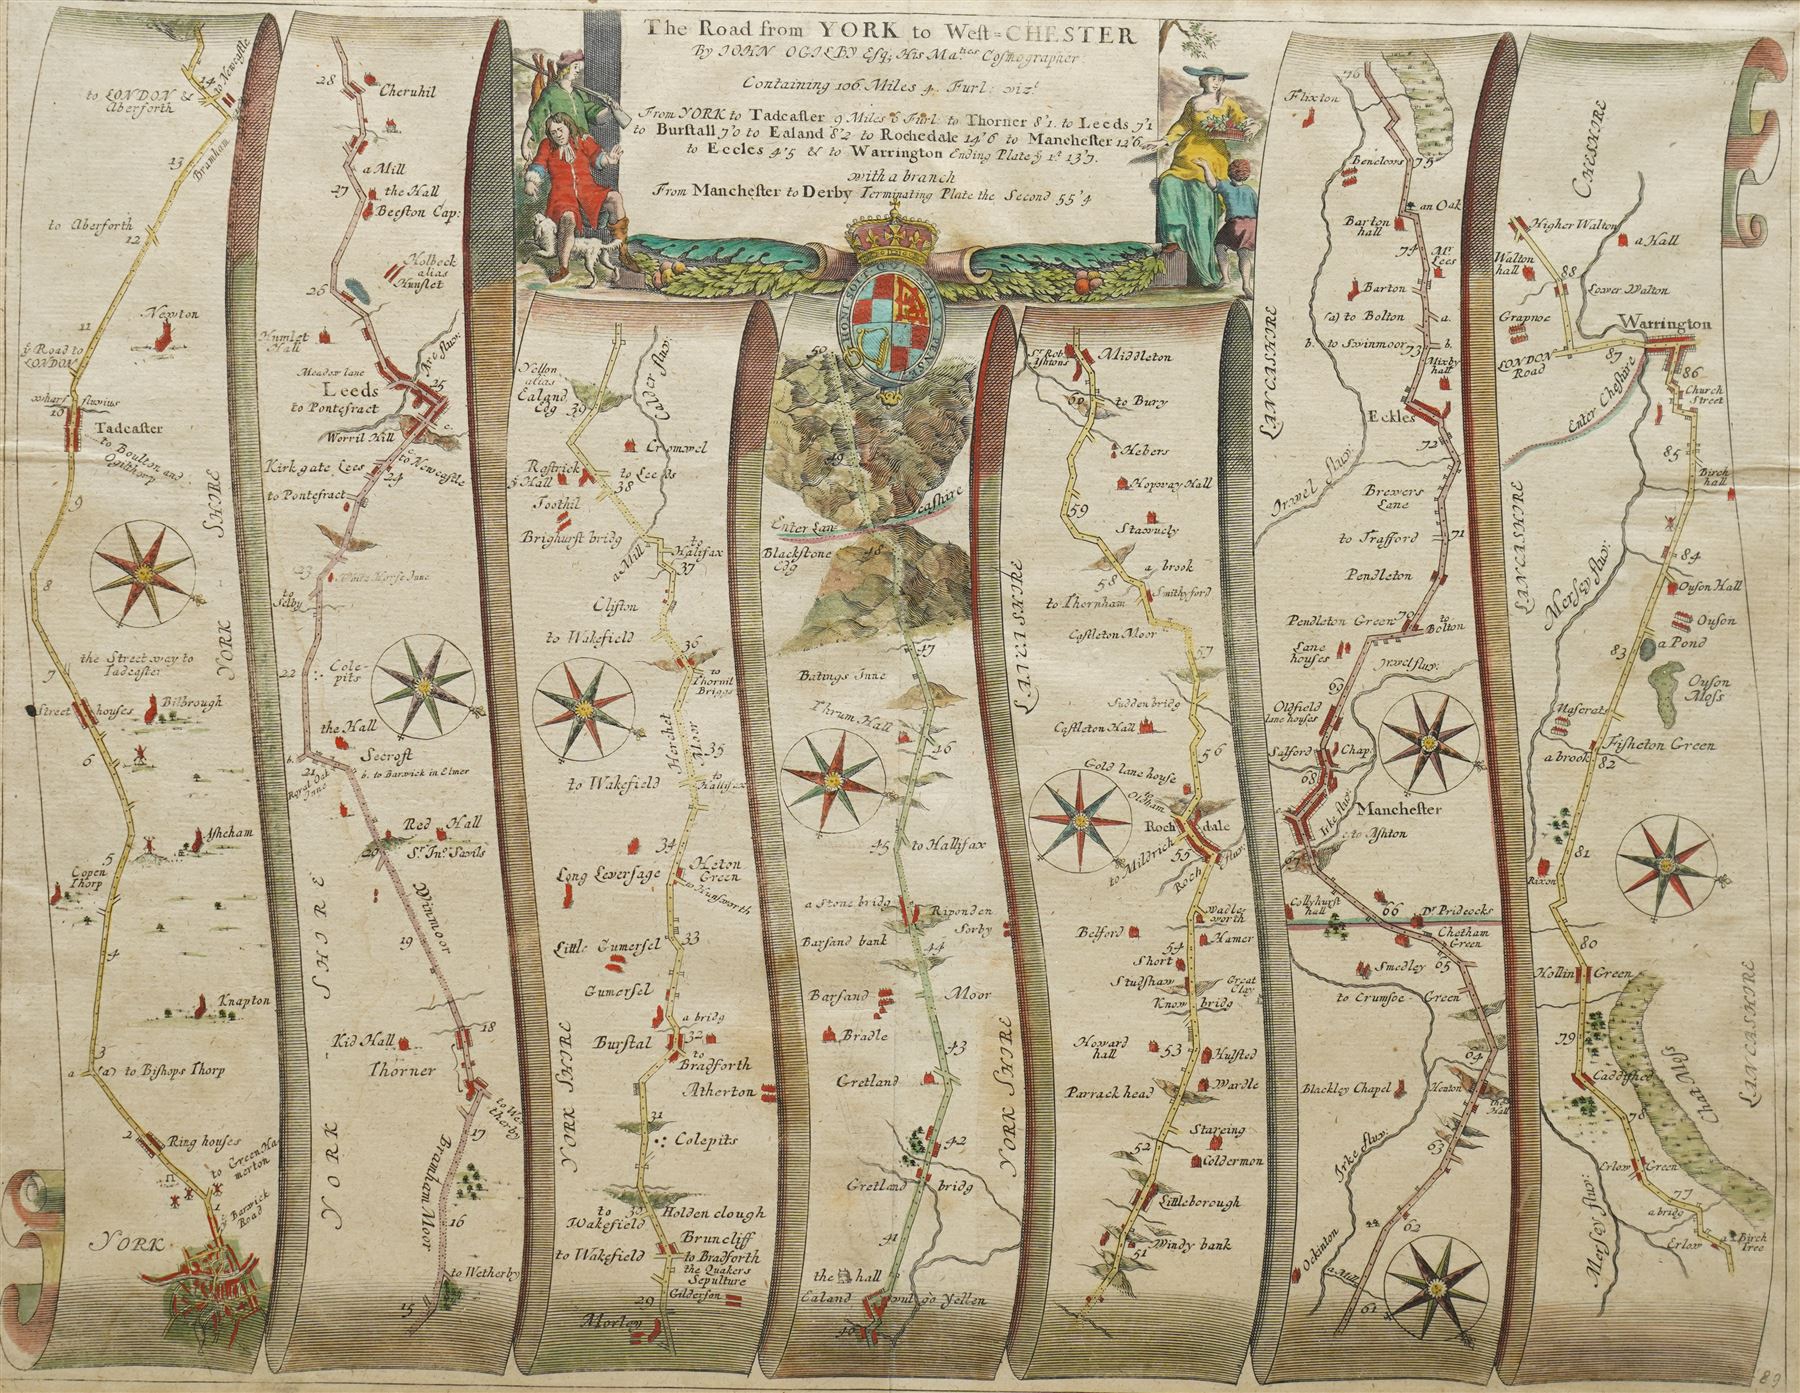 The Road from YORK to West=CHESTER
By JOHN OGILBY Esq; His Ma.ties Cosmographer.
Containing 106 Miles 4. Furl: viz.t
From YORK to Tadcaster 9 Miles 6 Furl: to Thorner 8'1. to Leeds 7'1
to Burstall 7'0 to Ealand 8'2 to Rochedale 14'6 to Manchester 12'6
to Eccles 4'5 & to Warrington Ending Plate ÿ 1.st 13'7.
with a branch
From Manchester to Derby Terminating Plate the Second 55'4
HONI SOIT QUI MAL Y PENSE
14
to Newcastle
to LONDON &
Aberforth
13
Bramham
to Aberforth
12
11
Newton
ÿ Road to
LONDON
Wharf fluvius
10
Tadcaster
to Boulton and
Oglthorp
9
YORK - SHIRE
8
the Street way to
Tadcaster
7
Street houses
Bilbrough
6
Askham
5
Copen
Thorp
4
Knapton
3
a (a) to Bishops Thorp
2
Ring houses
to Green Ha
merton
1
ÿ Barwick
Road
YORK
28
Cheruhil
a Mill
27
the Hall
Beeston Cap:
Holbeck
alias
Hunslet
26
Humlet
Hall
Are fluv:
Meadow lane
Leeds
25
to Pontefract
Worril Hill
c.
Kirkgate Lees
c to Newcastle
24
to Pontefract
23
White Horse Inne
to
Selby
22
Cole-
pits
the Hall
Seecroft
b.
21
b. to Barwick in Elmet
Royal Oak
Inne
Red Hall
S.r Jn.o Savils
20
Winmoor
19
YORK SHIRE
18
Kid Hall
Thorner
to We
therby
17
Bramham Moor
16
to Wetherby
15
Yellon
alias
Ealand
Edg
39
Calder fluv:
Cromwel
Rastrick
ÿ Hall
to Leeds
38
Toothil
Brighurst bridg
a Mill
to
Halifax
37
Clifton
to Wakefield
36
to
Thornil
Briggs
Hershet Moor
35
to Wakefield
to
Hallifax
34
Heton
Green
Long Leversage
to Hunsworth
33
Little Gumersel
Gumersel
a bridg
Burstal
32
to
Bradforth
Atherton
YORK SHIRE
31
Colepits
30
Holden clough
to
Wakefield
Bruncliff
to Wakefield
to Bradforth
the Quakers
Sepulture
29
Gilderson
Morley
50
49
Enter Lancashire
Blackstone
Edg
48
47
Batings Inne
Thrum Hall
46
45
to Hallifax
a Stone bridg
Riponden
Sorby
Barsand bank
44
Barsand
Moor
Bradle
43
Gretland
42
Gretland bridg
41
the hall
Ealand vulgo Yellen
40
YORK SHIRE
LANCASHIRE
S.r Rob.t
Ashtons
Middleton
60
to Bury
Hebers
Hopway Hall
59
Stawuely
a brook
58
Smithyford
to Thernham
Castleton Moor
57
Sudden bridg
Castleton Hall
56
Gold lane house
to
Oldham
Rochdale
to Mildrich
55
Roch fluv:
Wadles
worth
Belford
Hamer
54
Short
Studshaw
Great
Clay
Know bridg
Howard
hall
53
Hulsted
Wardle
Parrack head
Stareing
52
Coldermon
Littleborough
Windy bank
51
LANCASHIRE
76
Flixton
Benclows
75
an Oak
Barton
hall
74
Mr.
Lees
Barton
(a) to Bolton
a.
b. to Swinmoor
b.
73
Mixby
hall
Eckles
72
Irwel fluv:
Brewers
Lane
71
to Trafford
Pendleton
70
Pendleton Green
to
Bolton
Lane
houses
69
Irwel fluv:
Oldfield
lane houses
Salford
Chap.
68
Manchester
Irke fluv:
to Ashton
67
Collyhurst
hall
66
Dr. Prideocks
Chetham
Green
Smedley
65
to Crumsoe Green
64
Blackley Chapel
Heaton
the
Hall
63
Irke fluv:
62
Ockinton
a Mill
61
LANCASHIRE
CHESHIRE
Higher Walton
a Hall
Walton
hall
88
Lower Walton
Grapnoe
Warrington
LONDON
Road
87
86
Church
Street
Enter Cheshire
85
Birch
hall
Mersey fluv:
84
Ouson Hall
Ouson
a Pond
83
Ouson
Moss
Fisheton Green
a brook
82
81
Rixon
80
Hollin Green
79
Caddished
Chat Moss
78
Erlow Green
77
a bridg
Erlow
a Birch
Tree
Mersey fluv:
LANCASHIRE
89